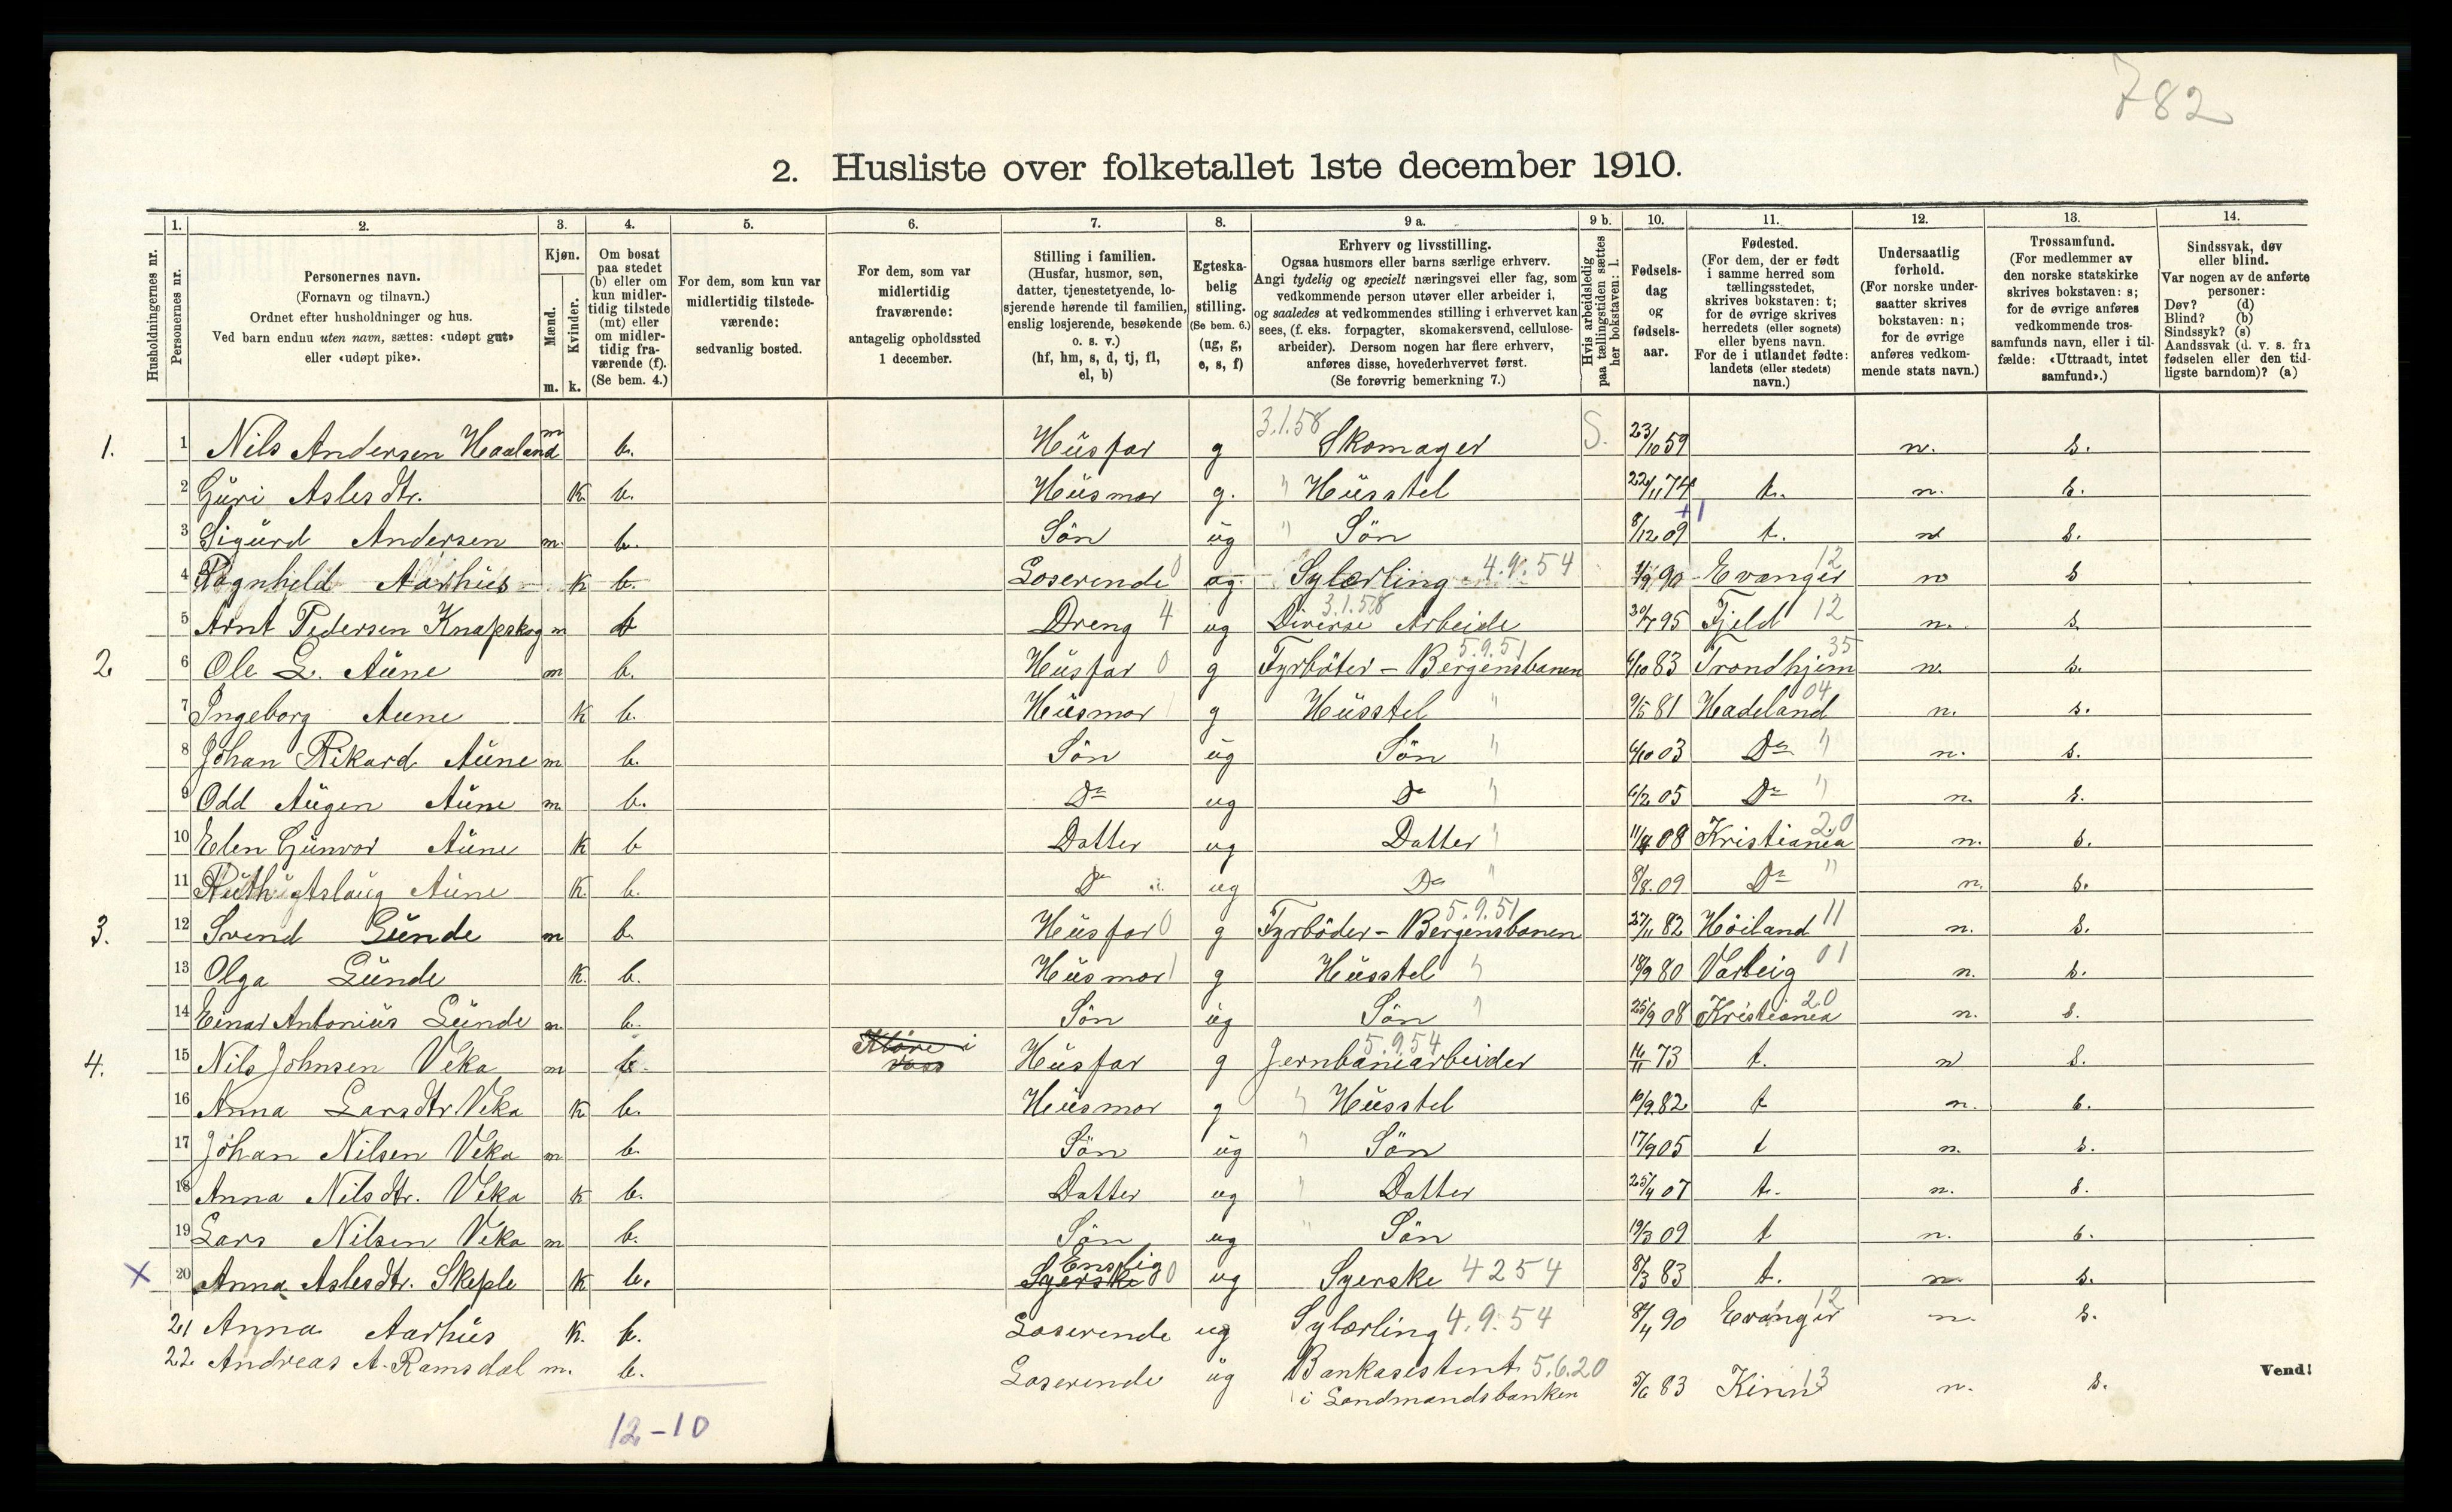 782
2. Husliste over folketallet 1ste december 1910.
1. 2. 3. 4. 5. 6. 7. 8. 9 a. 9 b. 10. 11. 12. 13. 14.
Husholdningernes nr.
Personernes nr.
Personernes navn.
(Fornavn og tilnavn.)
Ordnet efter husholdninger og hus.
Ved barn endnu uten navn, sættes: «udøpt gut»
eller «udøpt pike».
Kjøn.
Mænd.
Kvinder.
m. k.
Om bosat
paa stedet
(b) eller om
kun midler-
tidig tilstede
(mt) eller
om midler-
tidig fra-
værende (f).
(Se bem. 4.)
For dem, som kun var
midlertidig tilstede-
værende:
sedvanlig bosted.
For dem, som var
midlertidig
fraværende:
antagelig opholdssted
1 december.
Stilling i familien.
(Husfar, husmor, søn,
datter, tjenestetyende, lo-
sjerende hørende til familien,
enslig losjerende, besøkende
o. s. v.)
(hf, hm, s, d, tj, fl,
el, b)
Egteska-
belig
stilling.
(Se bem. 6.)
(ug, g,
e, s, f)
Erhverv og livsstilling.
Ogsaa husmors eller barns særlige erhverv.
Angi tydelig og specielt næringsvei eller fag, som
vedkommende person utøver eller arbeider i,
og saaledes at vedkommendes stilling i erhvervet kan
sees, (f. eks. forpagter, skomakersvend, cellulose-
arbeider). Dersom nogen har flere erhverv,
anføres disse, hovederhvervet først.
(Se forøvrig bemerkning 7.)
Hvis arbeidsledig
paa tællingstiden sættes
her bokstaven: l.
Fødsels-
dag
og
fødsels-
aar.
Fødested.
(For dem, der er født
i samme herred som
tællingsstedet,
skrives bokstaven: t;
for de øvrige skrives
herredets (eller sognets)
eller byens navn.
For de i utlandet fødte:
landets (eller stedets)
navn.)
Undersaatlig
forhold.
(For norske under-
saatter skrives
bokstaven: n;
for de øvrige
anføres vedkom-
mende stats navn.)
Trossamfund.
(For medlemmer av
den norske statskirke
skrives bokstaven: s;
for de øvrige anføres
vedkommende tros-
samfunds navn, eller i til-
fælde: «Uttraadt, intet
samfund».)
Sindssvak, døv
eller blind.
Var nogen av de anførte
personer:
Døv? (d)
Blind? (b)
Sindssyk? (s)
Aandssvak (d. v. s. fra
fødselen eller den tid-
ligste barndom)? (a)
1. 1 Nils Andersen Haaland m b. Husfar g 3.1.58 Skomager S. 23/10 59 n. s.
2 Guri Aslesdtr. k b. Husmor g. " Husstel 22/11 74 t. n. s.
3 Sigurd Andersen m. b. Søn ug " Søn 8/12 09 +1 t. n s.
4 Ragnhild Aarhus k b. Loserende 0 ug Sylærling 4.9.54 90 Evanger 12 n s
5 Arnt Pedersen Knapskog m b Dreng 4 ug Diverse Arbeide 3.1.58 95 Fjeld 12 n. s.
2. 6 Ole L. Aune m b. Husfar 0 g Fyrbøter - Bergensbanen 5.9.51 6/10 83 Trondhjem 35 n. s.
7 Ingeborg Aune k b. Husmor 1 g Husstel " 9/5 81 Hadeland 04 n. s.
8 Johan Rikard Aune m b. Søn ug Søn " 6/10 03 Do " n. s.
9 Odd Augen Aune m. b. Do ug Do " 6/2 05 Do " n. s.
10 Elen Gunvor Aune k b Datter ug Datter " 08 Kristiania 20 n. s.
11 Ruth Aslaug Aune k. b. Do ug Do " 8/8. 09 Do " n. s.
3. 12 Svend Lunde m b. Husfar 0 g Fyrbøder - Bergensbanen 5.9.51 27/11 82 Høiland 11 n. s.
13 Olga Lunde k. b. Husmor 1 g Husstel " 18/9 80 Varteig 01 n. s.
14 Einar Antonius Lunde m. b. Søn ug Søn " 25/9 08 Kristiania 20 n. s.
4. 15 Nils Johnsen Veka m b. i Voss Husfar g Jernbanearbeider 5.9.54 14/11 73 t. n s.
16 Anna Larsdtr Veka k b. Husmor g " Husstel 10/9. 82 t n. s.
17 Johan Nilsen Veka m b. Søn ug " Søn 17/9 05 t n. s.
18 Anna Nilsdtr. Veka k b. Datter ug " Datter 25/4 07 t. n. s.
19 Lars Nilsen Veka m b. Søn ug " Søn 19/3 09 t n. s.
X 20 Anna Aslesdtr. Skeple k b. Syerske Enslig 0 ug Syerske 4254 8/3 83 t. n. s.
21 Anna Aarhus k. b. Loserende ug Sylærling 4.9.54 8/4 90 Evanger 12 n. s.
22. Andreas A. Ramsdal m. b. Loserende ug Bankasistent 5.6.20 5/6 83 Kinn 13 n. s.
i Landmandsbanken
Vend!
12-10